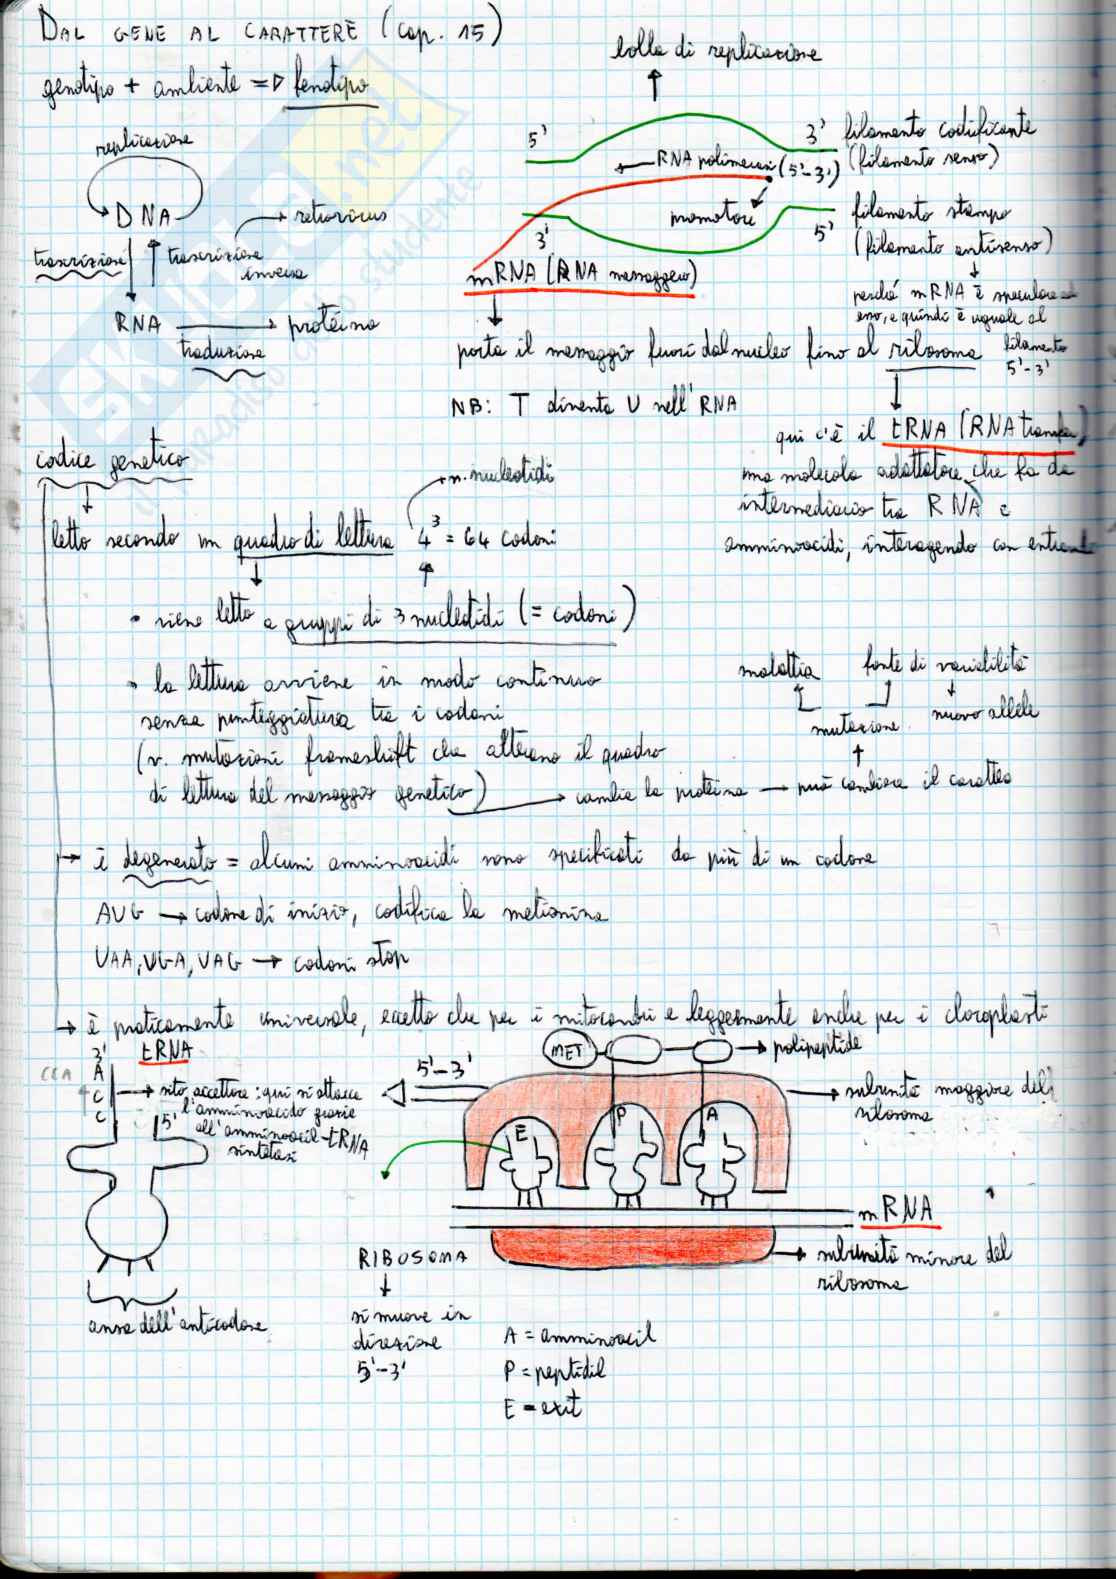 DAL GENE AL CARATTERE (cap. 15)
genotipo + ambiente => fenotipo
bolla di replicazione
replicazione
DNA
retrovirus
trascrizione
trascrizione inversa
RNA → proteina
traduzione
5' 3' filamento codificante
(filamento senso)
RNA polimerasi (5'-3')
promotore
3' 5' filamento stampo
(filamento antisenso)
mRNA (RNA messaggero)
perché mRNA è speculare ad
esso, e quindi è uguale al
filamento
5'-3'
porta il messaggio fuori dal nucleo fino al ribosoma
NB: T diventa U nell'RNA
qui c'è il tRNA (RNA transfer)
una molecola adattatore che fa da
intermediario tra RNA e
amminoacidi, interagendo con
codice genetico
n. nucleotidi
letto secondo un quadro di lettura 4³ = 64 codoni
• viene letto a gruppi di 3 nucleotidi (= codoni)
• la lettura avviene in modo continuo
senza punteggiatura tra i codoni
(v. mutazioni frameshift che alterano il quadro
di lettura del messaggio genetico) → cambia la proteina → può cambiare il carattere
malattia fonte di variabilità
mutazione nuovo allele
→ è degenerato = alcuni amminoacidi sono specificati da più di un codone
AUG → codone di inizio, codifica la metionina
UAA, UGA, UAG → codoni stop
→ è praticamente universale, eccetto che per i mitocondri e leggermente anche per i cloroplasti
tRNA
3'
CCA A
C
C
→ sito accettore: qui si attacca
l'amminoacido grazie
all'amminoacil-tRNA
sintetasi
5'
ansa dell'anticodone
5'-3'
MET → polipeptide
→ subunità maggiore del
ribosoma
E P A
mRNA
→ subunità minore del
ribosoma
RIBOSOMA
si muove in
direzione
5'-3'
A = amminoacil
P = peptidil
E = exit